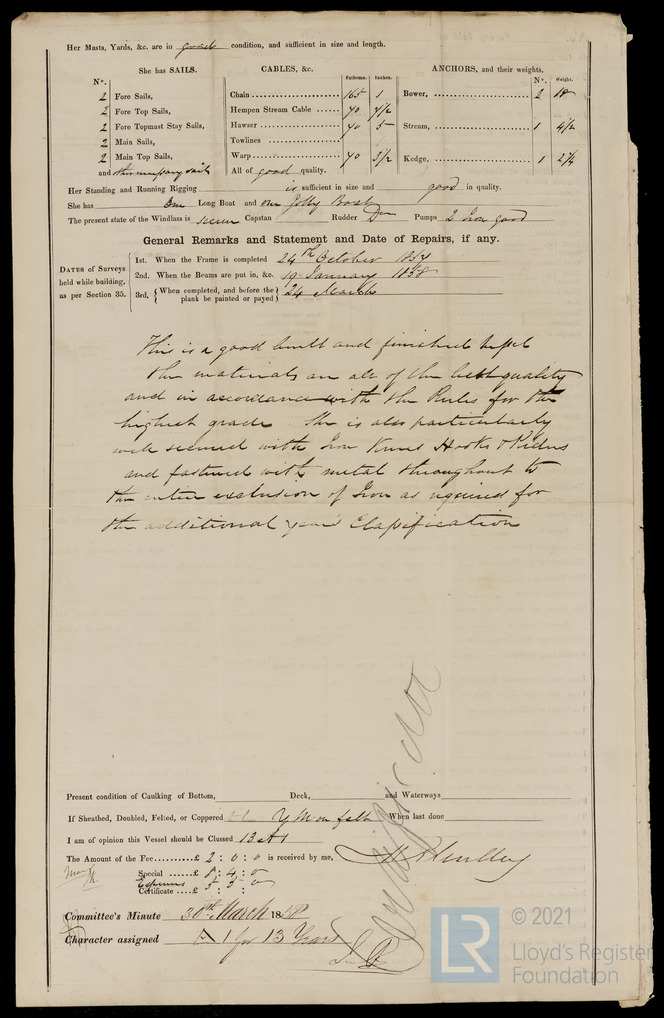 Her Masts, Yards, &c. are in good condition, and sufficient in size and length.
She has SAILS.
CABLES, &c.
Fathoms. Inches.
ANCHORS, and their weights.
Nº. Weight.
Nº.
2 Fore Sails,
2 Fore Top Sails,
2 Fore Topmast Stay Sails,
2 Main Sails,
2 Main Top Sails,
and other necessary sails
Chain 165 1
Hempen Stream Cable 70 7½
Hawser 70 5
Towlines
Warp 70 3½
All of good quality.
Bower, 2
Stream, 1 4½
Kedge, 1 2¼
Her Standing and Running Rigging is sufficient in size and good in quality.
She has One Long Boat and one Jolly Boat
The present state of the Windlass is Capstan Rudder Do Pumps 2 Iron good
General Remarks and Statement and Date of Repairs, if any.
DATES of Surveys held while building, as per Section 35.
1st. When the Frame is completed 24th October 1857
2nd. When the Beams are put in, &c. 19 January 1858
3rd, { When completed, and before the plank be painted or payed } 24 March
This is a good built and finished vessel
the materials are all of the best quality
and in accordance with the Rules for the
highest grade. She is also particularly
well secured with Iron Knees Hooks & Riders
and fastened with metal throughout to
the entire exclusion of Iron as required for
the additional year's Classification
Present condition of Caulking of Bottom, Deck, and Waterways
If Sheathed, Doubled, Felted, or Coppered Y M on felt When last done
I am of opinion this Vessel should be Classed 13 A 1
The Amount of the Fee £ 2 : 0 : 0 is received by me,
Special £ 8 : 4 : 0
Expenses
Certificate £ 5 : 5 : 0
Committee's Minute 30th March 1858
Character assigned A 1 for 13 Years
© 2021
LR
Lloyd's Register
Foundation